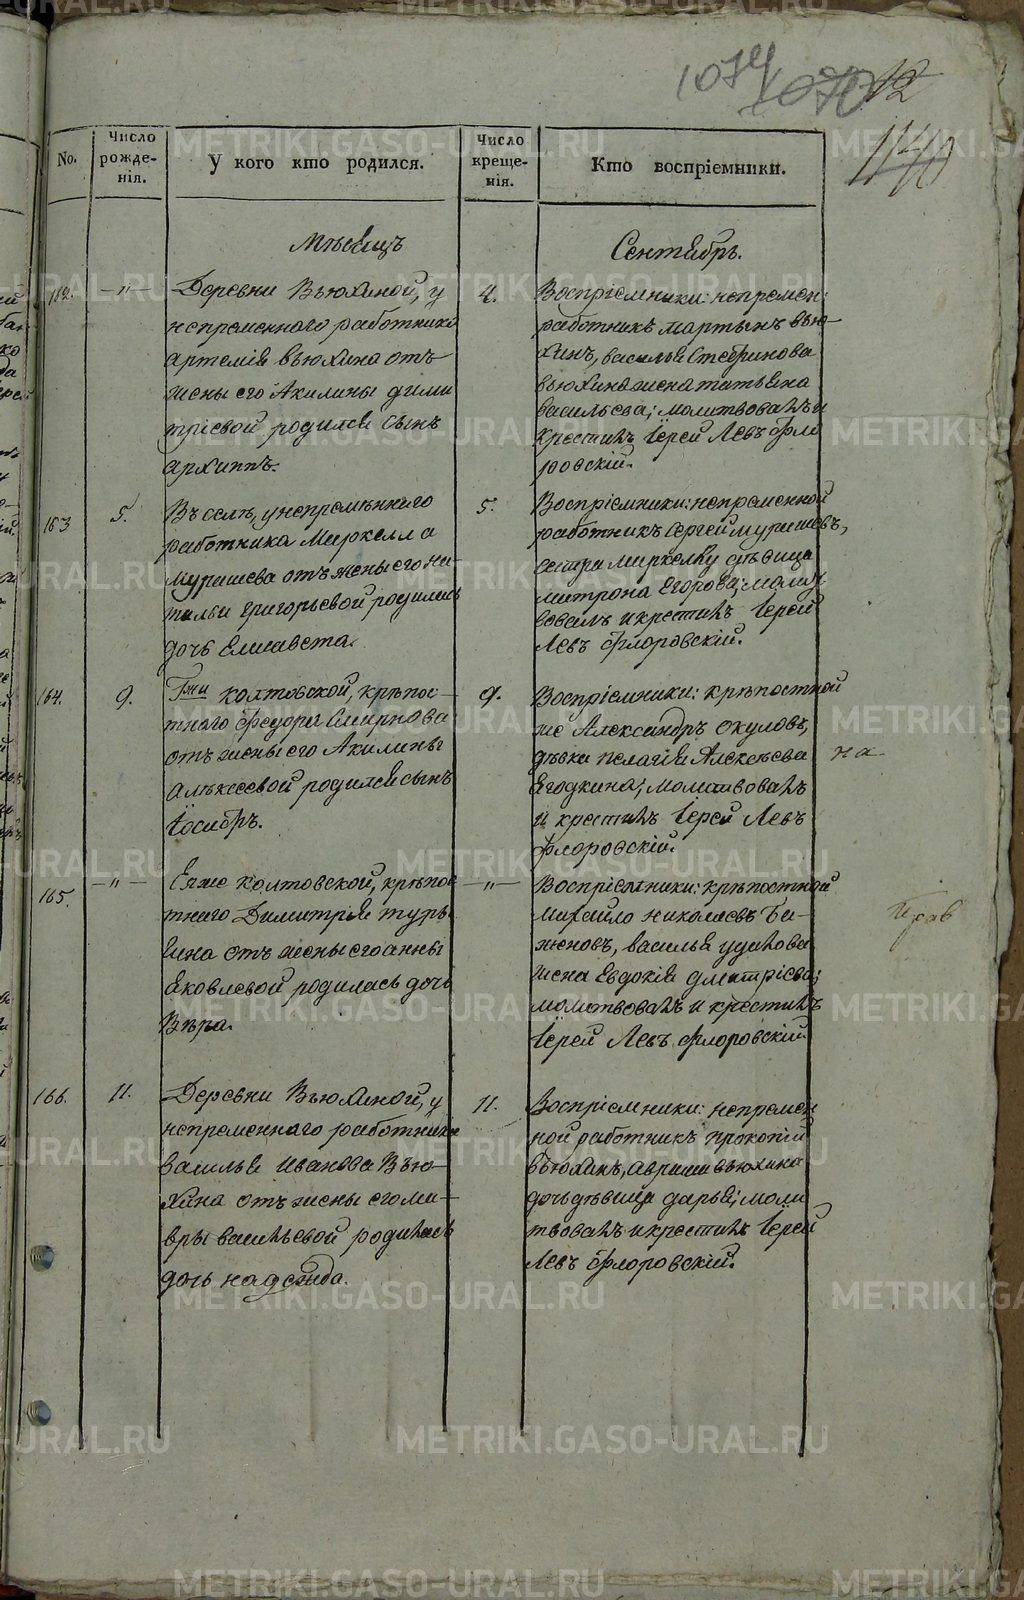 1074 1070 12
1140
No.
Число рожденія.
У кого кто родился.
Число крещенія.
Кто воспріемники.
Мѣсяцъ
Сентябрь.
162. — " —
Деревни Вьюхиной, у
непременнаго работника
Артемія Вьюхина отъ
жены его Акилины Дими
тріевой родился сынъ
Архиппъ.
4.
Воспріемники: непремен:
работникъ Мартынъ Вью-
хинъ, Василья
Вьюхина жена Татьяна
Васильева; молитвовалъ и
крестилъ Іерей Левъ Фло
ровскій.
163
5.
Въ селѣ, у непремѣннаго
работника Маркелла
Мурашева отъ жены его На-
тальи Григорьевой родилась
дочь Елисавета.
5.
Воспріемники: непременной
работникъ Сергей Мурашевъ,
дѣвица
Матрона Егорова; молит
вовалъ и крестилъ Іерей
Левъ Флоровскій.
164.
9.
Гжи Колтовской, крѣпос-
тнаго Феодора Смирнова
отъ жены его Акилины
Алексеевой родился сынъ
Іосифъ.
9.
Воспріемники: крѣпостной
же Александръ Окуловъ,
дѣвка Пелагія Алексѣева
Ягодкина; молитвовалъ
и крестилъ Іерей Левъ
Флоровскій.
на
165.
— " —
Ея же Колтовской, крѣпос
тнаго Димитрія Турь
ина отъ жены его Анны
Яковлевой родилась дочь
Вѣра.
— " —
Воспріемники: крѣпостной
Михайло Николаевъ Ба-
женовъ, Василья
жена Евдокія Дмитріева;
молитвовалъ и крестилъ
Іерей Левъ Флоровскій.
Прав
166.
11.
Деревни Вьюхиной, у
непременнаго работника
Василья Иванова Вью-
хина отъ жены его Ма-
вры Васильевой родилась
дочь Надежда.
11.
Воспріемники: непремен
ной работникъ Прокопій
Вьюхинъ, Вьюхина
дочь дѣвица Дарья; моли
твовалъ и крестилъ Іерей
Левъ Флоровскій.
METRIKI.GASO-URAL.RU